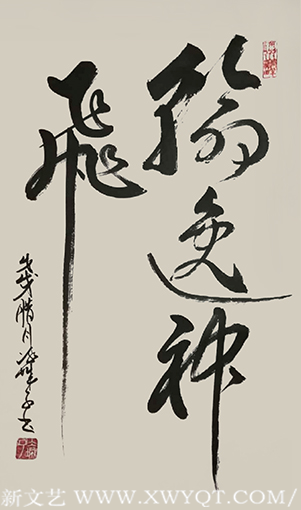 翰逸神
飛
腊月
新文艺 WWW.XWYQT.COM